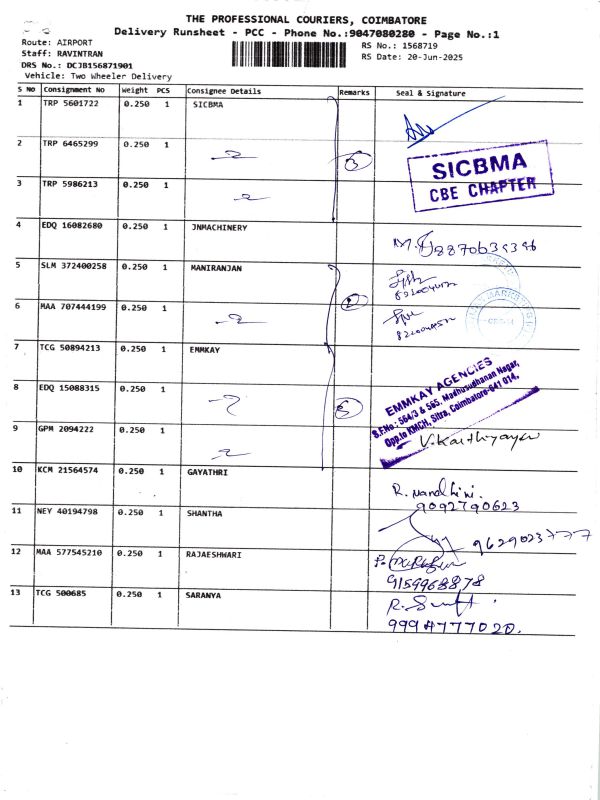 THE PROFESSIONAL COURIERS, COIMBATORE
Delivery Runsheet - PCC - Phone No.:9047080280 - Page No.:1
Route: AIRPORT
RS No.: 1568719
Staff: RAVINTRAN
RS Date: 20-Jun-2025
DRS No.: DCJB156871901
Vehicle: Two Wheeler Delivery
S No Consignment No Weight PCS Consignee Details Remarks Seal & Signature
1 TRP 5601722 0.250 1 SICBMA
2 TRP 6465299 0.250 1 3
SICBMA
CBE CHAPTER
3 TRP 5986213 0.250 1
4 EDQ 16082680 0.250 1 JNMACHINERY
5 SLM 372400258 0.250 1 MANIRANJAN
6 MAA 707444199 0.250 1 2
7 TCG 50894213 0.250 1 EMMKAY
8 EDQ 15088315 0.250 1
EMMKAY AGENCIES
S.F.No.: 564/3 & 565, Madhusudhanan Nagar,
Opp.to KMCH, Sitra, Coimbatore-641 014.
9 GPM 2094222 0.250 1
10 KCM 21564574 0.250 1 GAYATHRI
R. Nandhini.
9092790623
11 NEY 40194798 0.250 1 SHANTHA
9629023777
12 MAA 577545210 0.250 1 RAJAESHWARI
9159968878
13 TCG 500685 0.250 1 SARANYA
9994777020.